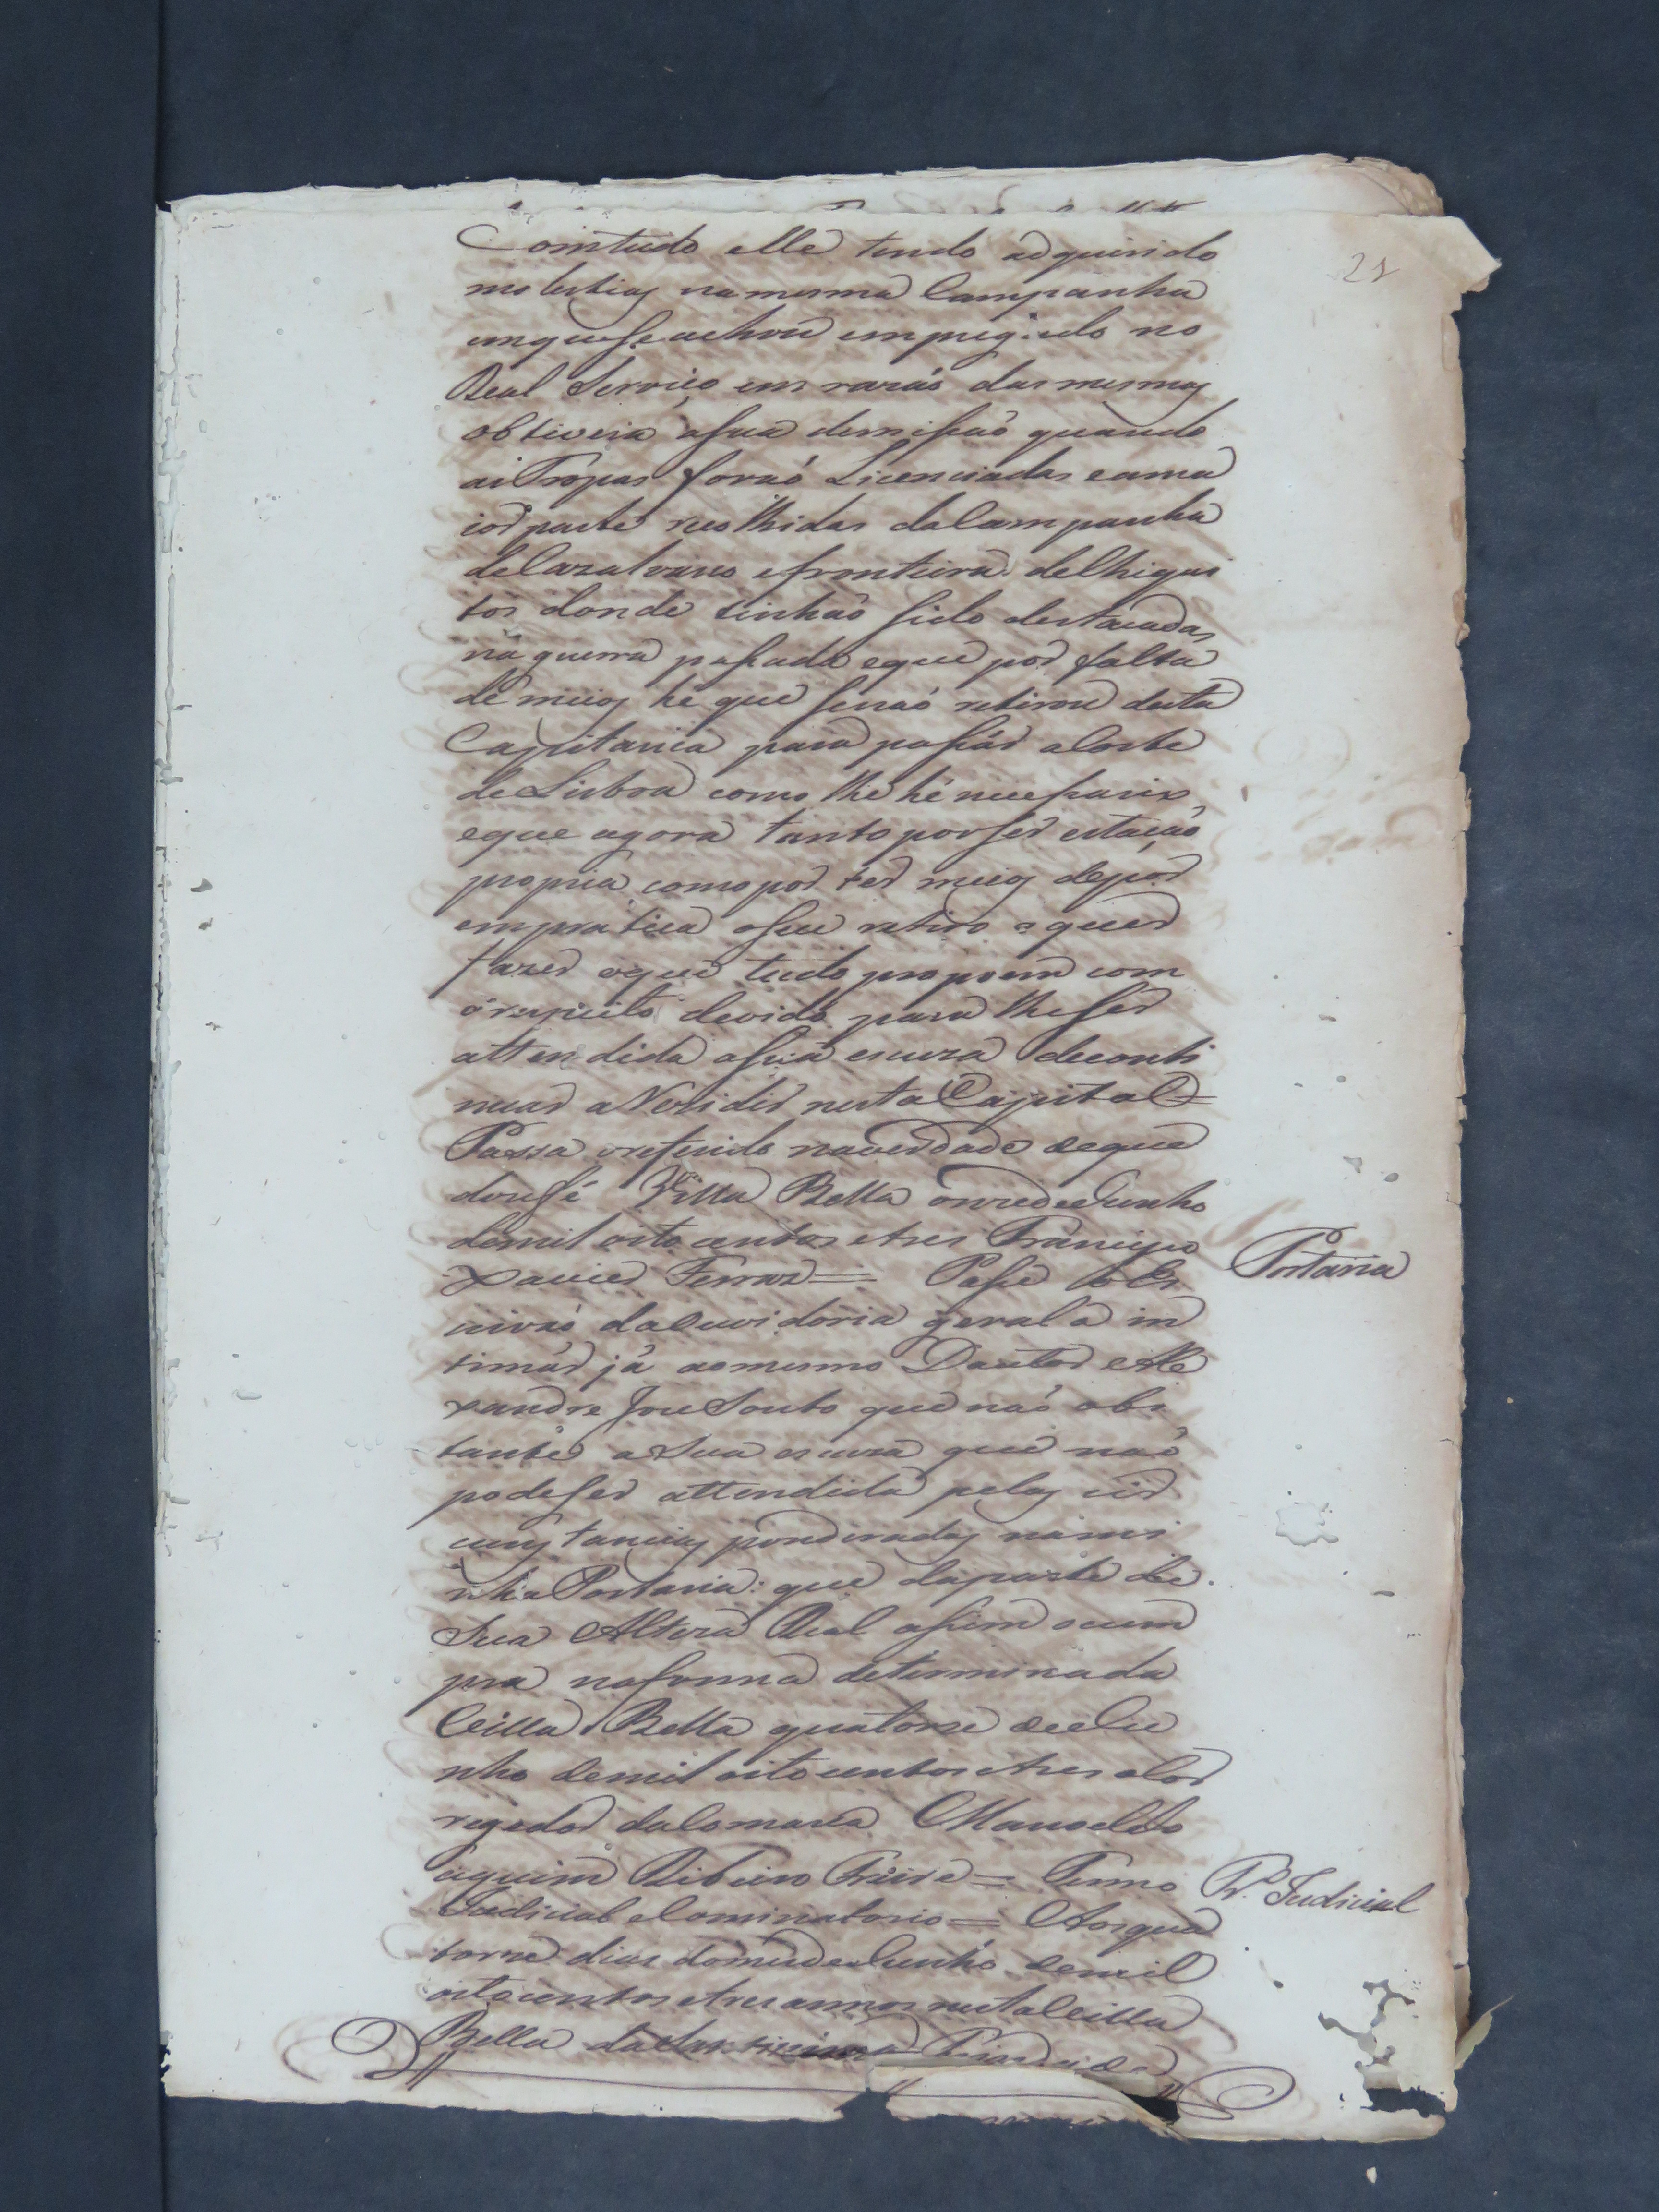 21
Comtudo elle tendo adquirido
molestias namesma Campanha
emquese achou empregado no
Real Serviço em razaõ dasmesmas
obtivera asua demissaõ quando
as Tropas foraõ Licenciadas eama
ior parte recolhidas daCampanha
deCazalvasco efronteira deChiqui
tos donde tinhaõ sido destacadas
na guerra passada eque por falta
de meios he que senaõ retirou desta
Capitania para passar aCorte
de Lisboa como lhe hé necessario
eque agora tanto porser estaçaõ
propria como por ter meios depor
empratica oseu retiro o quer
fazer oque tudo propoem com
o respeito devido para lheser
attendida asua escuza deconti
nuar aRezidir nesta Capital =
Passa oreferido naverdade deque
doufé Villa Bella onze deJunho
demil oito centos etres Francisco
Xavier Ferraz = Passe o Es
crivaõ daOuvidoria geral a in
timar já aomesmo Doutor Ale
xandre Jose Souto que naõ obs
tante a Sua escuza que naõ
podeser attendida pelas cir
cunstancias ponderadas nami
nha Portaria: que daparte de
Sua Alteza Real assim ocum
pra naforma determinada
Villa Bella quatorze deJu
nho demil oitocentos etres oCor
regedor daComarca Manoel Jo
aquim Ribeiro Freire = Termo
Judicial eCominatorio = Aosqua
torze dias domes deJunho demil
oitocentos etres annos nesta Villa
Bella da Santissima Trindade
Portaria
Pr. Judicial